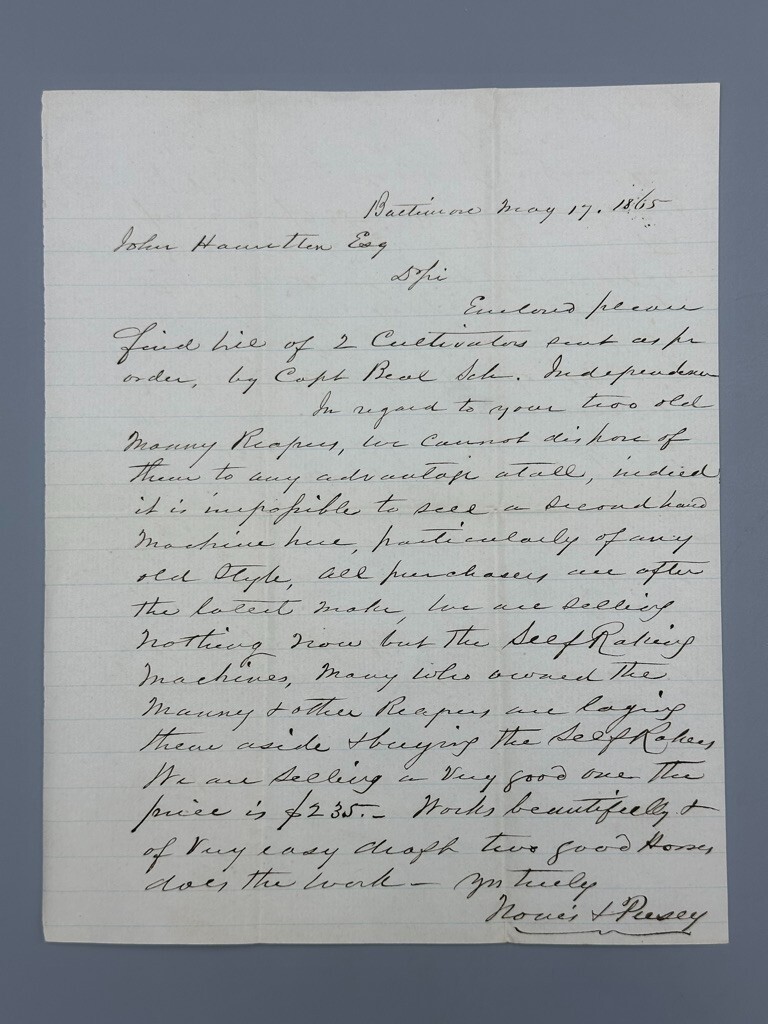 Baltimore May 17. 1865
John Hamilton Esq
D Sir
Enclosed please
find bill of 2 Cultivators sent as pr
order, by Capt Beal Sch. Independence
In regard to your two old
Manny Reapers, we cannot dispose of
them to any advantage atall, indeed
it is impossible to sell a second hand
Machine here, particularly of any
old Style, all purchasers are after
the latest make, we are selling
nothing now but the Self Raking
Machines, Many who owned the
Manny & other Reapers are laying
them aside & buying the Self Rakers
We are selling a very good one the
price is $235.- Works beautifully &
of very easy draft two good Horses
does the work - Yrs truly
Norris & Pusey